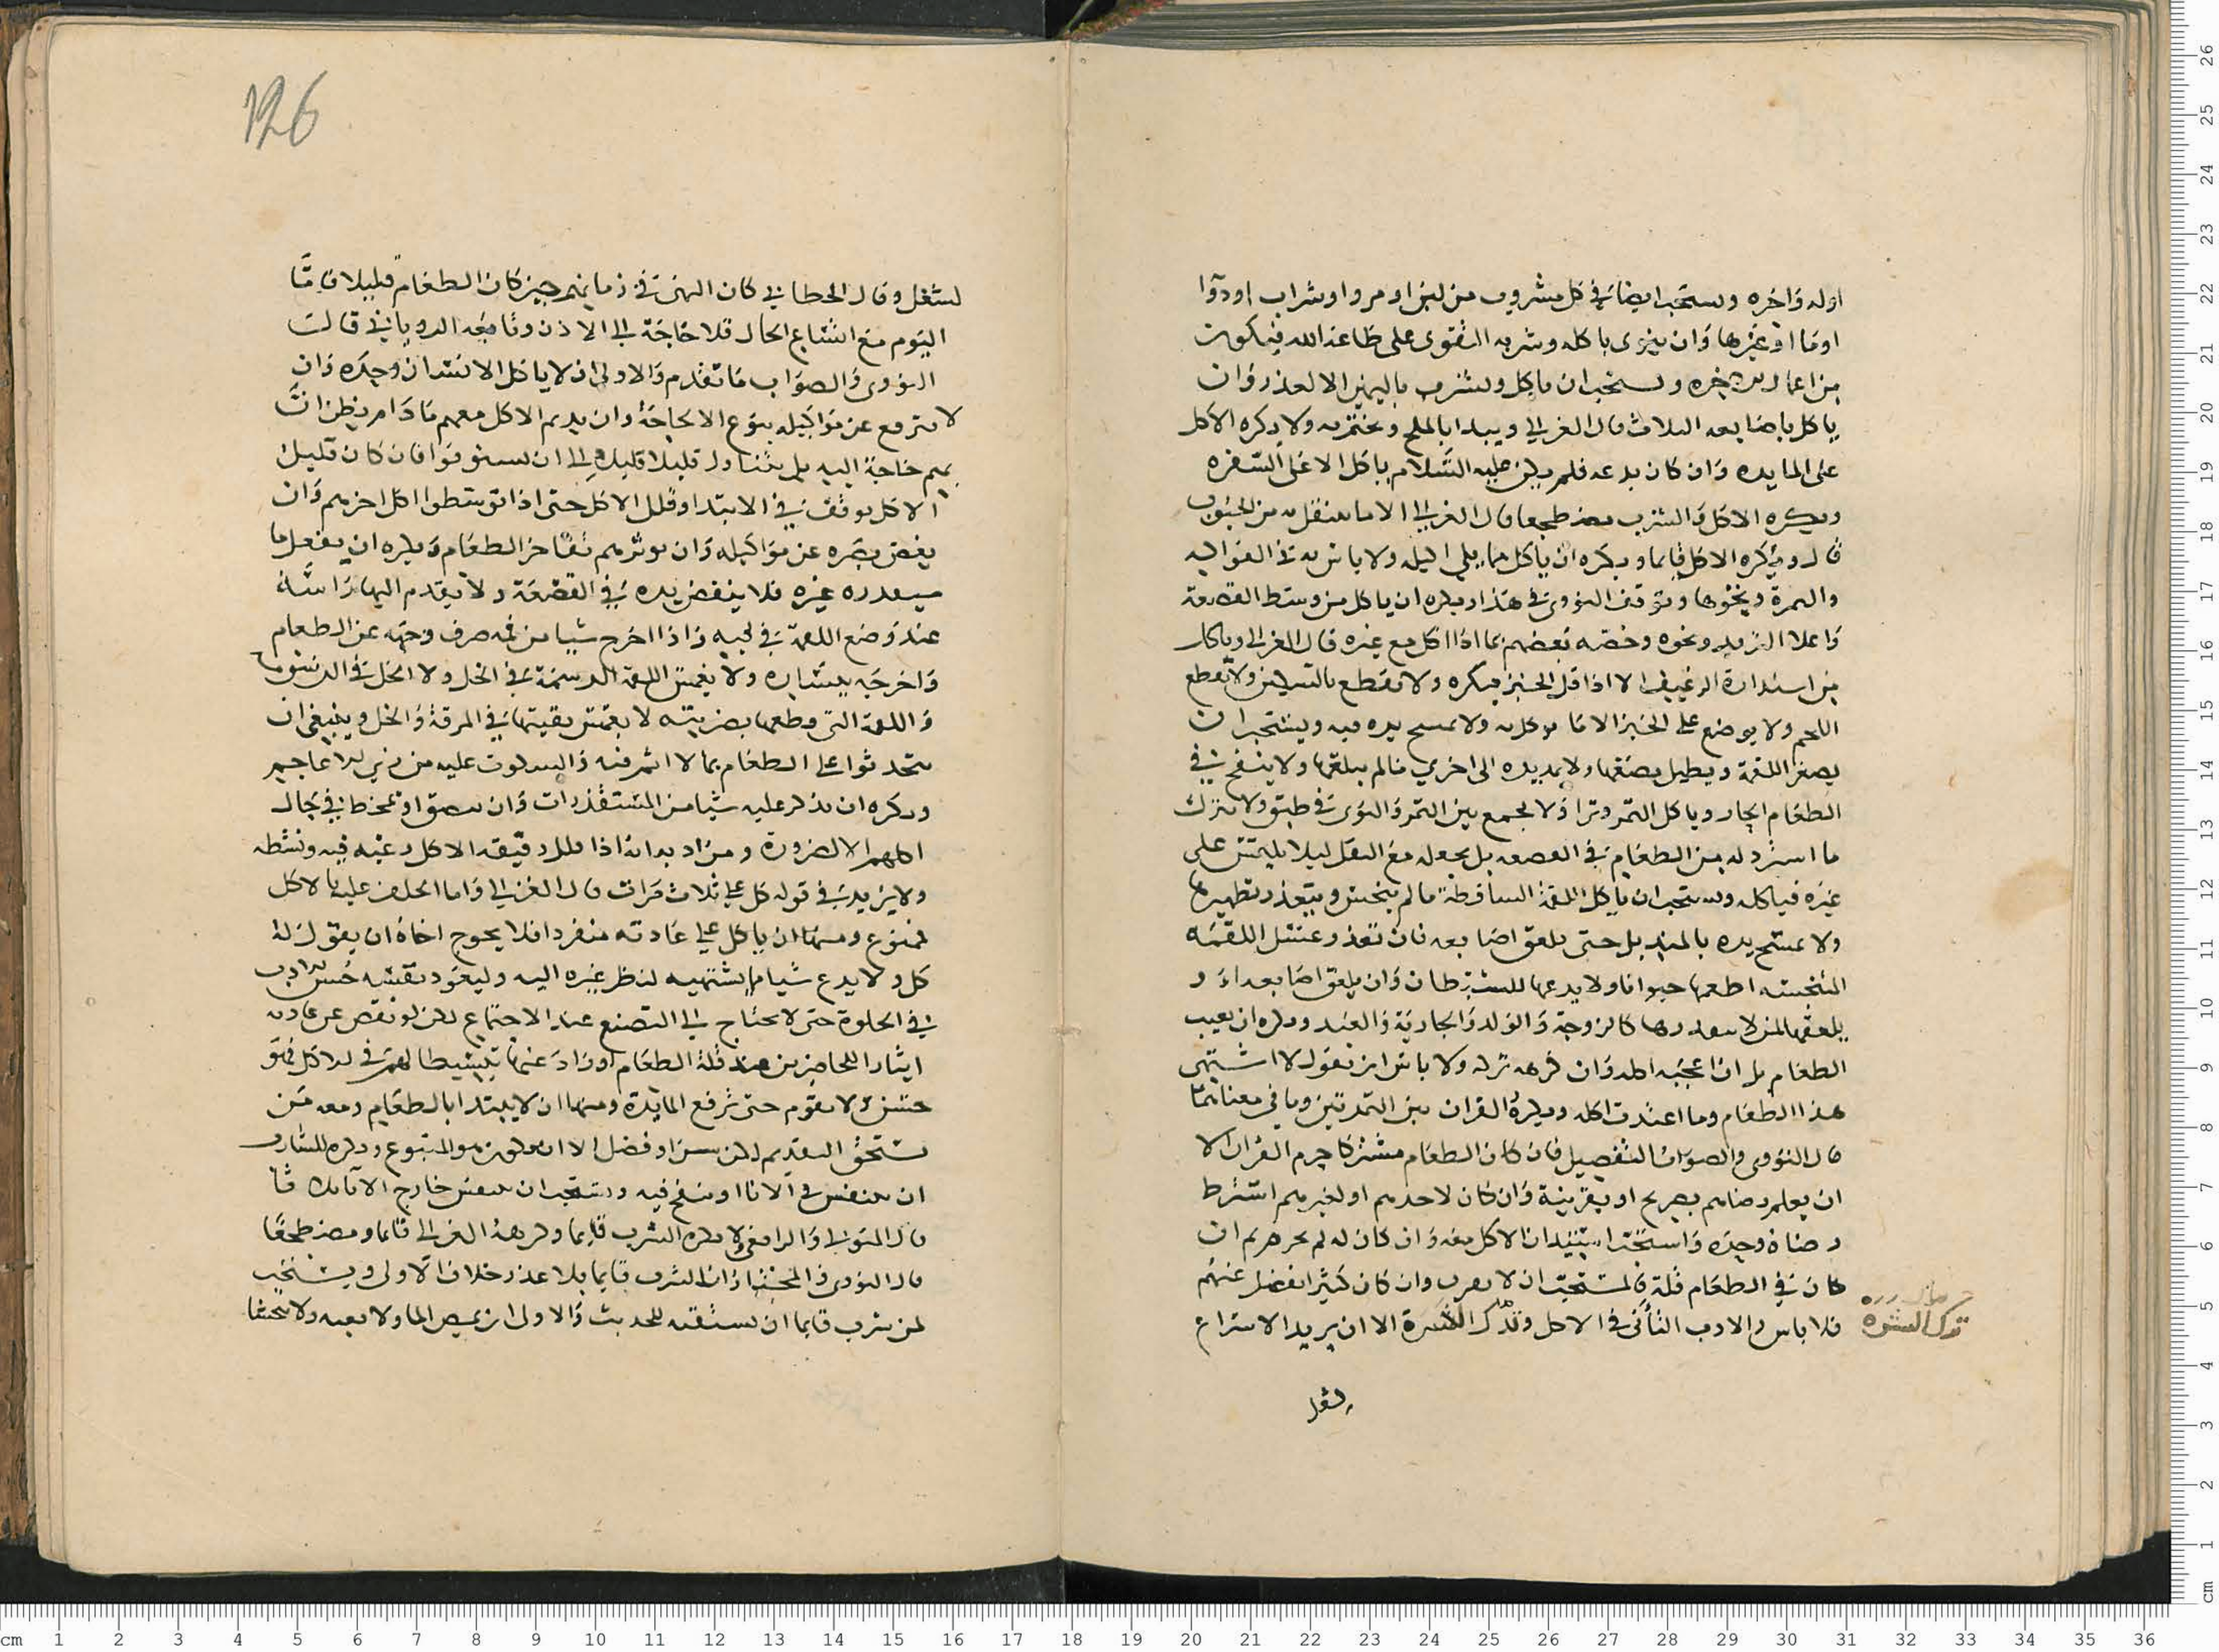 اوله واخره ويستحب ايضا في كل مشروب من لبن او مرو او شراب او دوا
او ما او غيرها وان ينوى باكله وشربه التقوى على طاعة الله فيكون
من اعمال الاخره ويستحب ان ياكل ويشرب باليمين الا لعذر وان
ياكل باصابعه الثلاث قال الغزالي ويبدا بالملح ويختم به ولا يكره الاكل
على المايده وان كان بدعه فلم يكن عليه السلام ياكل الا على السفره
ويكره الاكل والشرب مضطجعا قال الغزالي الا ما يتنقل به من الحبوب
قال ويكره الاكل قايما ويكره ان ياكل مما يلي اكيله ولا باس به في الفواكه
والتمرة ونحوها وتوقف النووى في هذا ويكره ان ياكل من وسط القصعة
واعلا الثريد ونحوه وخصه بعضهم بما اذا اكل مع غيره قال الغزالي وياكل
من استدارة الرغيف الا اذا قل الخبز فيكره ولا يقطع بالسكين ولا يقطع
اللحم ولا يوضع على الخبز الا ما يوكل به ولا يمسح يده فيه ويستحب ان
يصغر اللقمة ويطيل مضغها ولا يمد يده الى اخري مالم يبلعها ولا ينفخ في
الطعام الحار وياكل التمر وترا ولا يجمع بين التمر والنوى في طبق ولا يترك
ما استرذله من الطعام في القصعه بل يجعله مع الثفل ليلا يلتبس على
غيره فياكله ويستحب ان ياكل اللقمة الساقطة ما لم يتنجس ويتعذر تطهيرها
ولا يمسح يده بالمنديل حتى يلعق اصابعه فان تعذر غسل اللقمه
المنجسه اطعمها حيوانا ولا يدعها للشيطان وان يلعق اصابعه او
يلعقها لمن لا يتقذرها كالزوجة والولد والجارية والعبد ويكره ان يعيب
الطعام بل ان اعجبه اكله وان كرهه تركه ولا باس ان يقول لا اشتهي
هذا الطعام وما اعتدت اكله ويكره القران بين التمرتين وما في معناهما
قال النووى والصواب التفصيل فان كان الطعام مشتركا حرم القران الا
ان يعلم رضاهم بصريح او بقرينة وان كان لاحدهم او لغيرهم اشترط
رضاه وحده واستحب استيذان الاكل معه وان كان له لم يحرم ثم ان
كان في الطعام قلة فالمستحب ان لا يقرن وان كان كثيرا يفضل عنهم
فلا باس والادب التأني في الاكل وترك الشره الا ان يريد الاسراع
ترك الشره
لشغل
126
لشغل وقال الخطابي كان النهى في زمانهم حين كان الطعام قليلا فاما
اليوم مع اتساع الحال فلا حاجة الى الاذن وتابعه الروياني قالت
النووى والصواب ما تقدم والاولى ان لا ياكل الانسان وحده وان
لا يترفع عن مواكيله بنوع الا لحاجة وان يديم الاكل معهم ما دام يظن ان
بهم حاجة اليه بل يتناول قليلا قليلا الى ان يستوفوا فان كان قليل
الاكل توقف في الابتدا وقلل الاكل حتى اذا توسطوا اكل اخرهم وان
يغض بصره عن مواكيله وان يوثرهم بفاخر الطعام ويكره ان يفعل ما
يستقذره غيره فلا ينفض يده في القصعة ولا يقدم اليها راسه
عند وضع اللقمة في فيه واذا اخرج شيا من فمه صرف وجهه عن الطعام
واخرجه بيساره ولا يغمس اللقمة الدسمة في الخل ولا الخل في الدسومه
واللقمة التي قطعها بضرسه لا يغمس بقيتها في المرقة والخل وينبغي ان
يتحدثوا على الطعام بما لا اثم فيه والسكوت عليه من زي الاعاجم
ويكره ان يذكر عليه شيا من المستقذرات وان يبصق او يمخط في حال
اكلهم الا لضرورة ومن ادابه انه اذا قلل رفيقه الاكل رغبه فيه ونشطه
ولا يزيد في قوله كل على ثلاث مرات قال الغزالي واما الحلف عليه بالاكل
فممنوع ومنها ان ياكل على عادته منفردا فلا يحوج اخاه ان يقول له
كل ولا يدع شيا مما يشتهيه لنظر غيره اليه وليعود نفسه حسن الادب
في الخلوة حتى لا يحتاج الى التصنع عند الاجتماع لكن لو نقص عن عادته
ايثارا للحاضرين عند قلة الطعام او زاد عنها تنشيطا لهم في الاكل فهو
حسن ولا يقوم حتى ترفع المايدة ومنها ان لا يبتدا بالطعام ومعه من
يستحق التقديم لكبر سن او فضل الا ان يكون هو المتبوع ويكره للشارب
ان يتنفس في الانا او ينفخ فيه ويستحب ان يتنفس خارج الانا ثلاثا
قال المتولي والرافعي ولا يكره الشرب قايما وكرهه الغزالي قايما ومضطجعا
قال النووى والمختار ان الشرب قايما بلا عذر خلاف الاولى ويستحب
لمن شرب قايما ان يستقيه للحديث والاولى ان يمص الما ولا يعبه ولا يتجشا